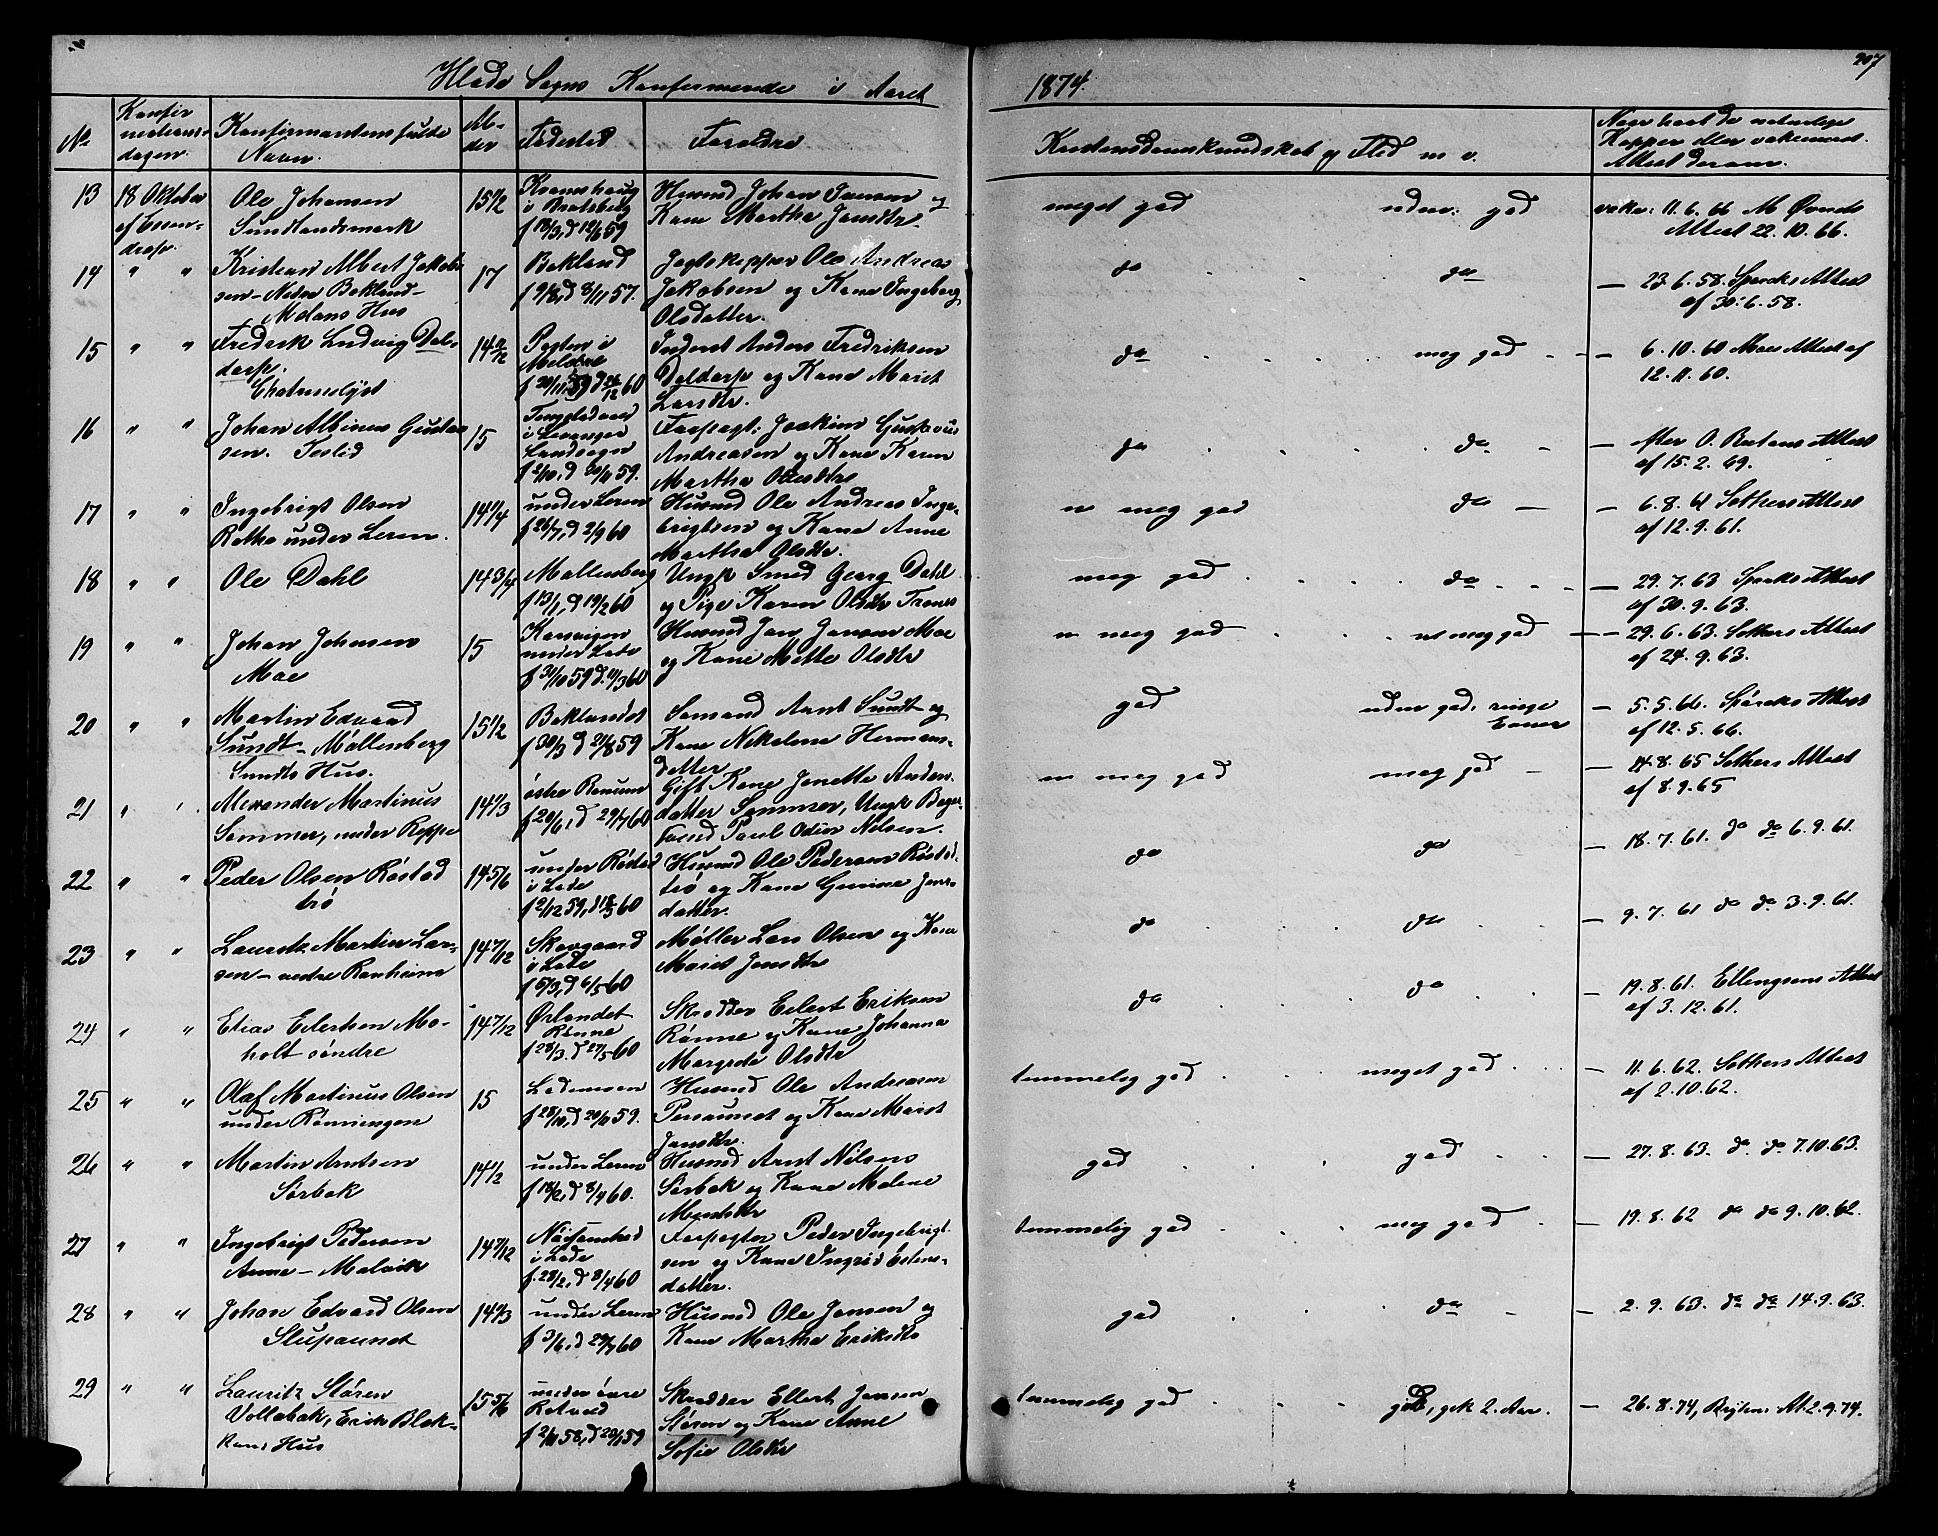 207
Hlade Sogns Konfirmerede i Aaret 1874.
No
Konfir
mations-
dagen.
Konfirmantens fulde
Navn.
Al-
der
Fødested
Forældre
Kristendomskundskab og Flid m. v.
Naar havt de naturlige
Kopper eller vakcineret.
Attest derom.
13 18 Oktober Ole Johansen 15 1/2
Husmd Johan Iversen og
Kone Martha Jonsdtr.
i Bratsberg
f 18/3, d 12/6 59
meget god udm. god vakc. 11.6.66
Attest 22.10.66.
14 " " Kristian Albert Jakob-
sen - Nedre Bakland-
Hus
17 Bakland
f 9/8, d 8/11 57.
Jagtskipper Ole Andreas
Jakobsen og Kone Ingeborg
Olsdatter.
do do — 23.6.58. Attest
af 30.6.58.
15 " " Fredrik Ludvig Dal-
dorp.
14 9/12
Inderst Anders Fredriksen
Daldorp og Kone Marit
Larsdtr.
do meg god — 6.10.60 Moes Attest af
12.11.60.
16 " " Johan Albinus Gustav
sen. Teslid
15
i Levanger
Landsogn
f 2/10, d 20/11 59.
Forpagt: Joakim Gustavus
Andreasen og Kone Karen
Martha
do do — efter O. Attest
af 15.2.69.
17 " " Ingebrigt Olsen
Rotha under Leren.
14 1/4 under Leren
f 26/7, d 2/9 60
Husmd Ole Andreas Inge-
brigtsen og Kone Anne
Martha Olsdtr.
n meg god do — 6.8.61 Sothers Attest
af 12.9.61.
18 " " Ole Dahl 14 3/4 Møllenberg
f 13/1, d 19/2 60
Ungk Smed Georg Dahl
og Pige Karen Olsdtr
meg god do — 29.7.63 Attest
af 30.9.63.
19 " " Johan Johnsen
Moe
15 Korsvigen
under Lade
f 31/10 59 d. 11/3 60
Husmd Jon Jonsen Moe
og Kone Mette Olsdtr
n meg god n meg god — 29.6.63. Sothers Attest
af 24.9.63.
20 " " Martin Edvard
Sundt - Møllenberg
Sundts Hus.
15 1/2 Baklandet
f 30/3 d 21/8 59
Sømand Arnt Sundt og
Kone Nikoline Hermans-
datter
god udm god, ringe
Evner
— 5.5.66. Attest
af 12.5.66.
21 " " Alexander Martinus
Sommer, under Reppe
14 1/3 østre Ranum
f 20/6, d 29/7 60
Gift Kone Jenette Anders-
datter Sommer, Ungk Bager-
svend Paul Odin Nilsen.
n meg god meg god — 14.8.65 Sothers Attest
af 8.9.65
22 " " Peder Olsen Røstad
trø
14 5/6 under Røstad
i Lade
f 2/12 59, d 18/3 60
Husmd Ole Pedersen Røstad-
trø og Kone Gurine Jons-
datter.
do do — 18.7.61. do do 6.9.61.
23 " " Lauritz Martin Lar-
sen - nedre Ranheim
14 7/12 Skovgaard
i Lade
f 5/3, d 6/5 60
Møller Lars Olsen og Kone
Marit Jonsdtr
do do — 9.7.61 do do 3.9.61.
24 " " Elias Eilertsen Mo-
holt søndre
14 7/12 Ørlandet
Rønne
f 28/3. d 27/5 60
Skrædder Eilert Eriksen
Rønne og Kone Johanna
Margrete Olsdtr
do do — 19.8.61. Ellingsens Attest
af 3.12.61.
25 " " Olaf Martinus Olsen
under Rønningen
15 Lademoen
f 28/10, d 20/11 59.
Husmd Ole Andreasen
Persaunet og Kone Marit
Jonsdtr.
temmelig god meget god — 11.6.62. Sothers Attest
af 2.10.62.
26 " " Martin Arntsen
Sørbak
14 1/2 under Leren
f 18/2, d 8/4 60.
Husmd Arnt Nilsen
Sørbak og Kone Malene
god god — 27.8.63. do do 7.10.63.
27 " " Ingebrigt Pedersen
Malvik
14 7/12
i Lade
f. 28/2, d 8/4 60
Forpagter Peder Ingebrigt-
sen og Kone Ingrid Estens-
datter.
temmelig god meg god — 19.8.62 do do 9.10.62.
28 " " Johan Edvard Olsen
Stupaunet
14 1/3 under Leren
f 3/6, d 29/7 60
Husmd Ole Jonsen og
Kone Martha Eriksdtr
god do — 2.9.63. do do 14.9.63.
29 " " Lauritz Støren
Vollabak, Erik Blek-
kens Hus
15 5/6 under øvre
Rotvold
f 2/11 58, d 20/1 59
Skrædder Ellert Jonsen
Støren og Kone Anne
Sofie Olsdtr
temmelig god god, gik 2. Aar. — 26.8.74, At. 2.9.74.